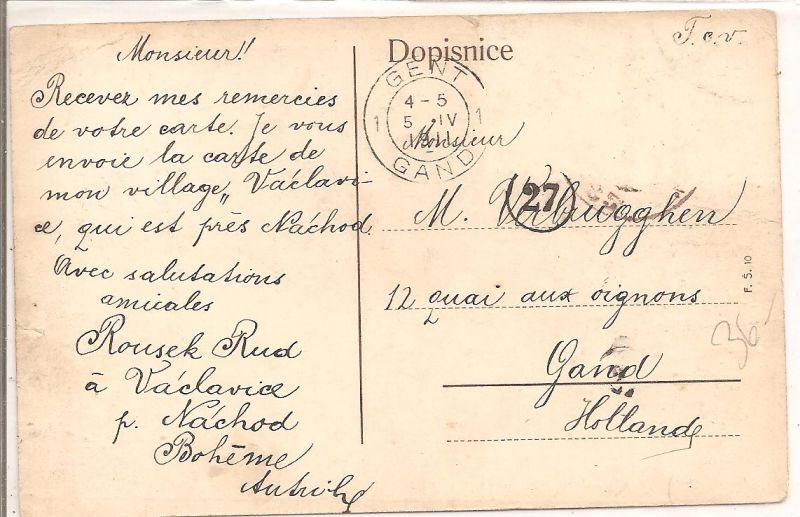 Monsieur!!
Recevez mes remercies
de votre carte. Je vous
envoie la carte de
mon village „ Václavi-
ce, qui est près Náchod.
Avec salutations
amicales
Rousek Rud
à Václavice
p. Náchod
Bohême
Dopisnice
T. c. v.
GENT
1 4-5 1
5 IV
1911
GAND
Monsieur
27
M. Verbrugghen
12 quai aux oignons
Gand
Holland
F. Š. 10
36